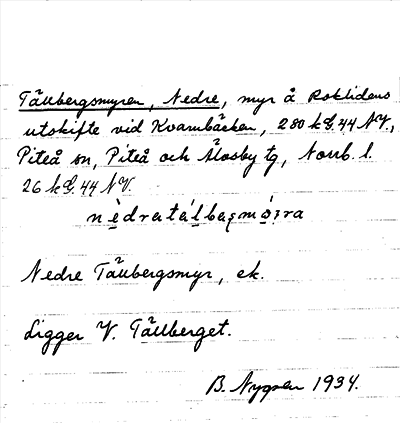 Tällbergsmyren, Nedre, myr å Roklidens
utskifte vid Kvarnbäcken, 280 k G. 44 NV.,
Piteå sn, Piteå och Älvsby tg, Norrb. l.
26 k G. 44 NV.
Nedre Tällbergsmyr, ek.
Ligger V. Tällberget.
B. Nygren 1934.